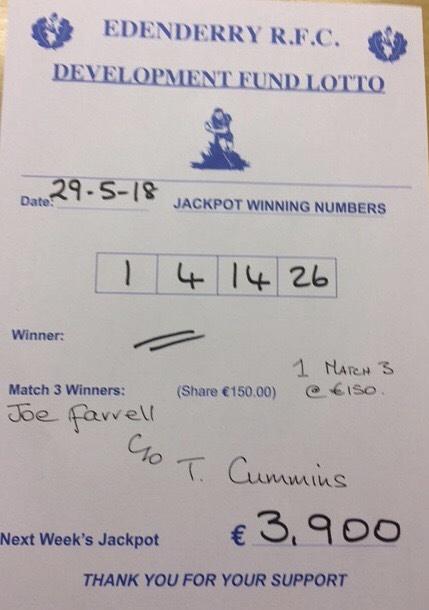 EDENDERRY R.F.C.
DEVELOPMENT FUND LOTTO
Date: 29-5-18 JACKPOT WINNING NUMBERS
1 4 14 26
Winner:
1 MATCH 3
Match 3 Winners: (Share €150.00) @ €150.
Joe Farrell
C/o T. Cummins
Next Week's Jackpot € 3,900
THANK YOU FOR YOUR SUPPORT